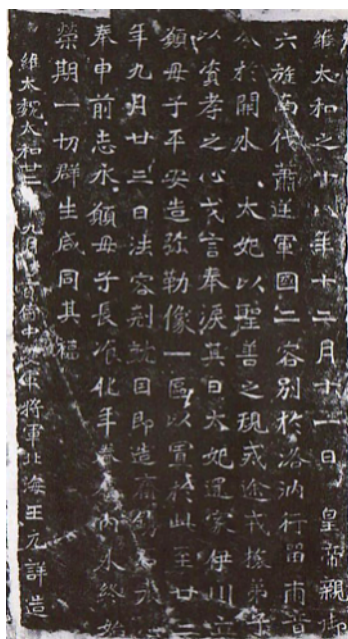 維太和之十八年十二月十一日皇帝親御
六旌南伐蕭逆軍國二容別於洛汭行留兩音
分於開外太妃以聖善之規戒途戎旅弟子
以資孝之心戈言奉淚其日太妃還家伊川立
願母子平安造弥勒像一區以置於此至廿二
年九月廿三日法容剋就因即造齋鐫石
奉申前志永願母子長 化年眷 內外終始
榮期一切群生咸同其福
維大魏太和廿二年九月廿三日侍中護軍將軍北海王元詳造